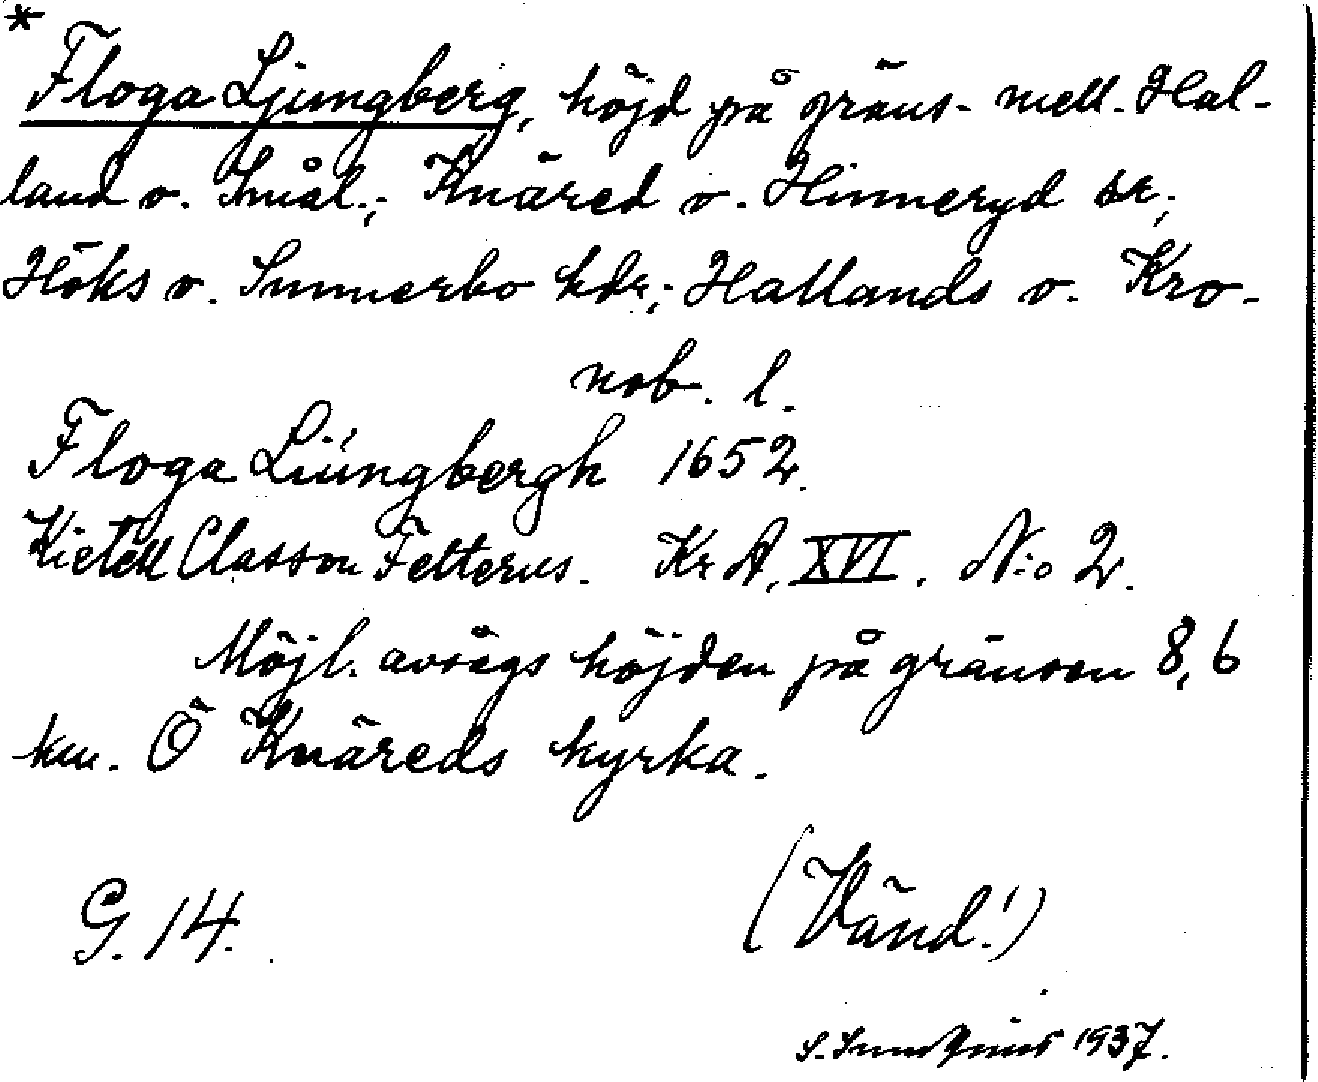 *
Floga Ljungberg, höjd på gräns- mell. Hal-
land o. Smål.; Knäred o. Hinneryd sr;
Höks o. Sunnerbo hdr; Hallands o. Kro-
nob. l.
Floga Liüngbergh 1652.
Kietell Classon Felterus. Kr A. XVI. N:o 2.
Möjl. avsågs höjden på gränsen 8,6
km. Ö Knäreds kyrka.
G. 14.
(Vänd!)
S. 1937.